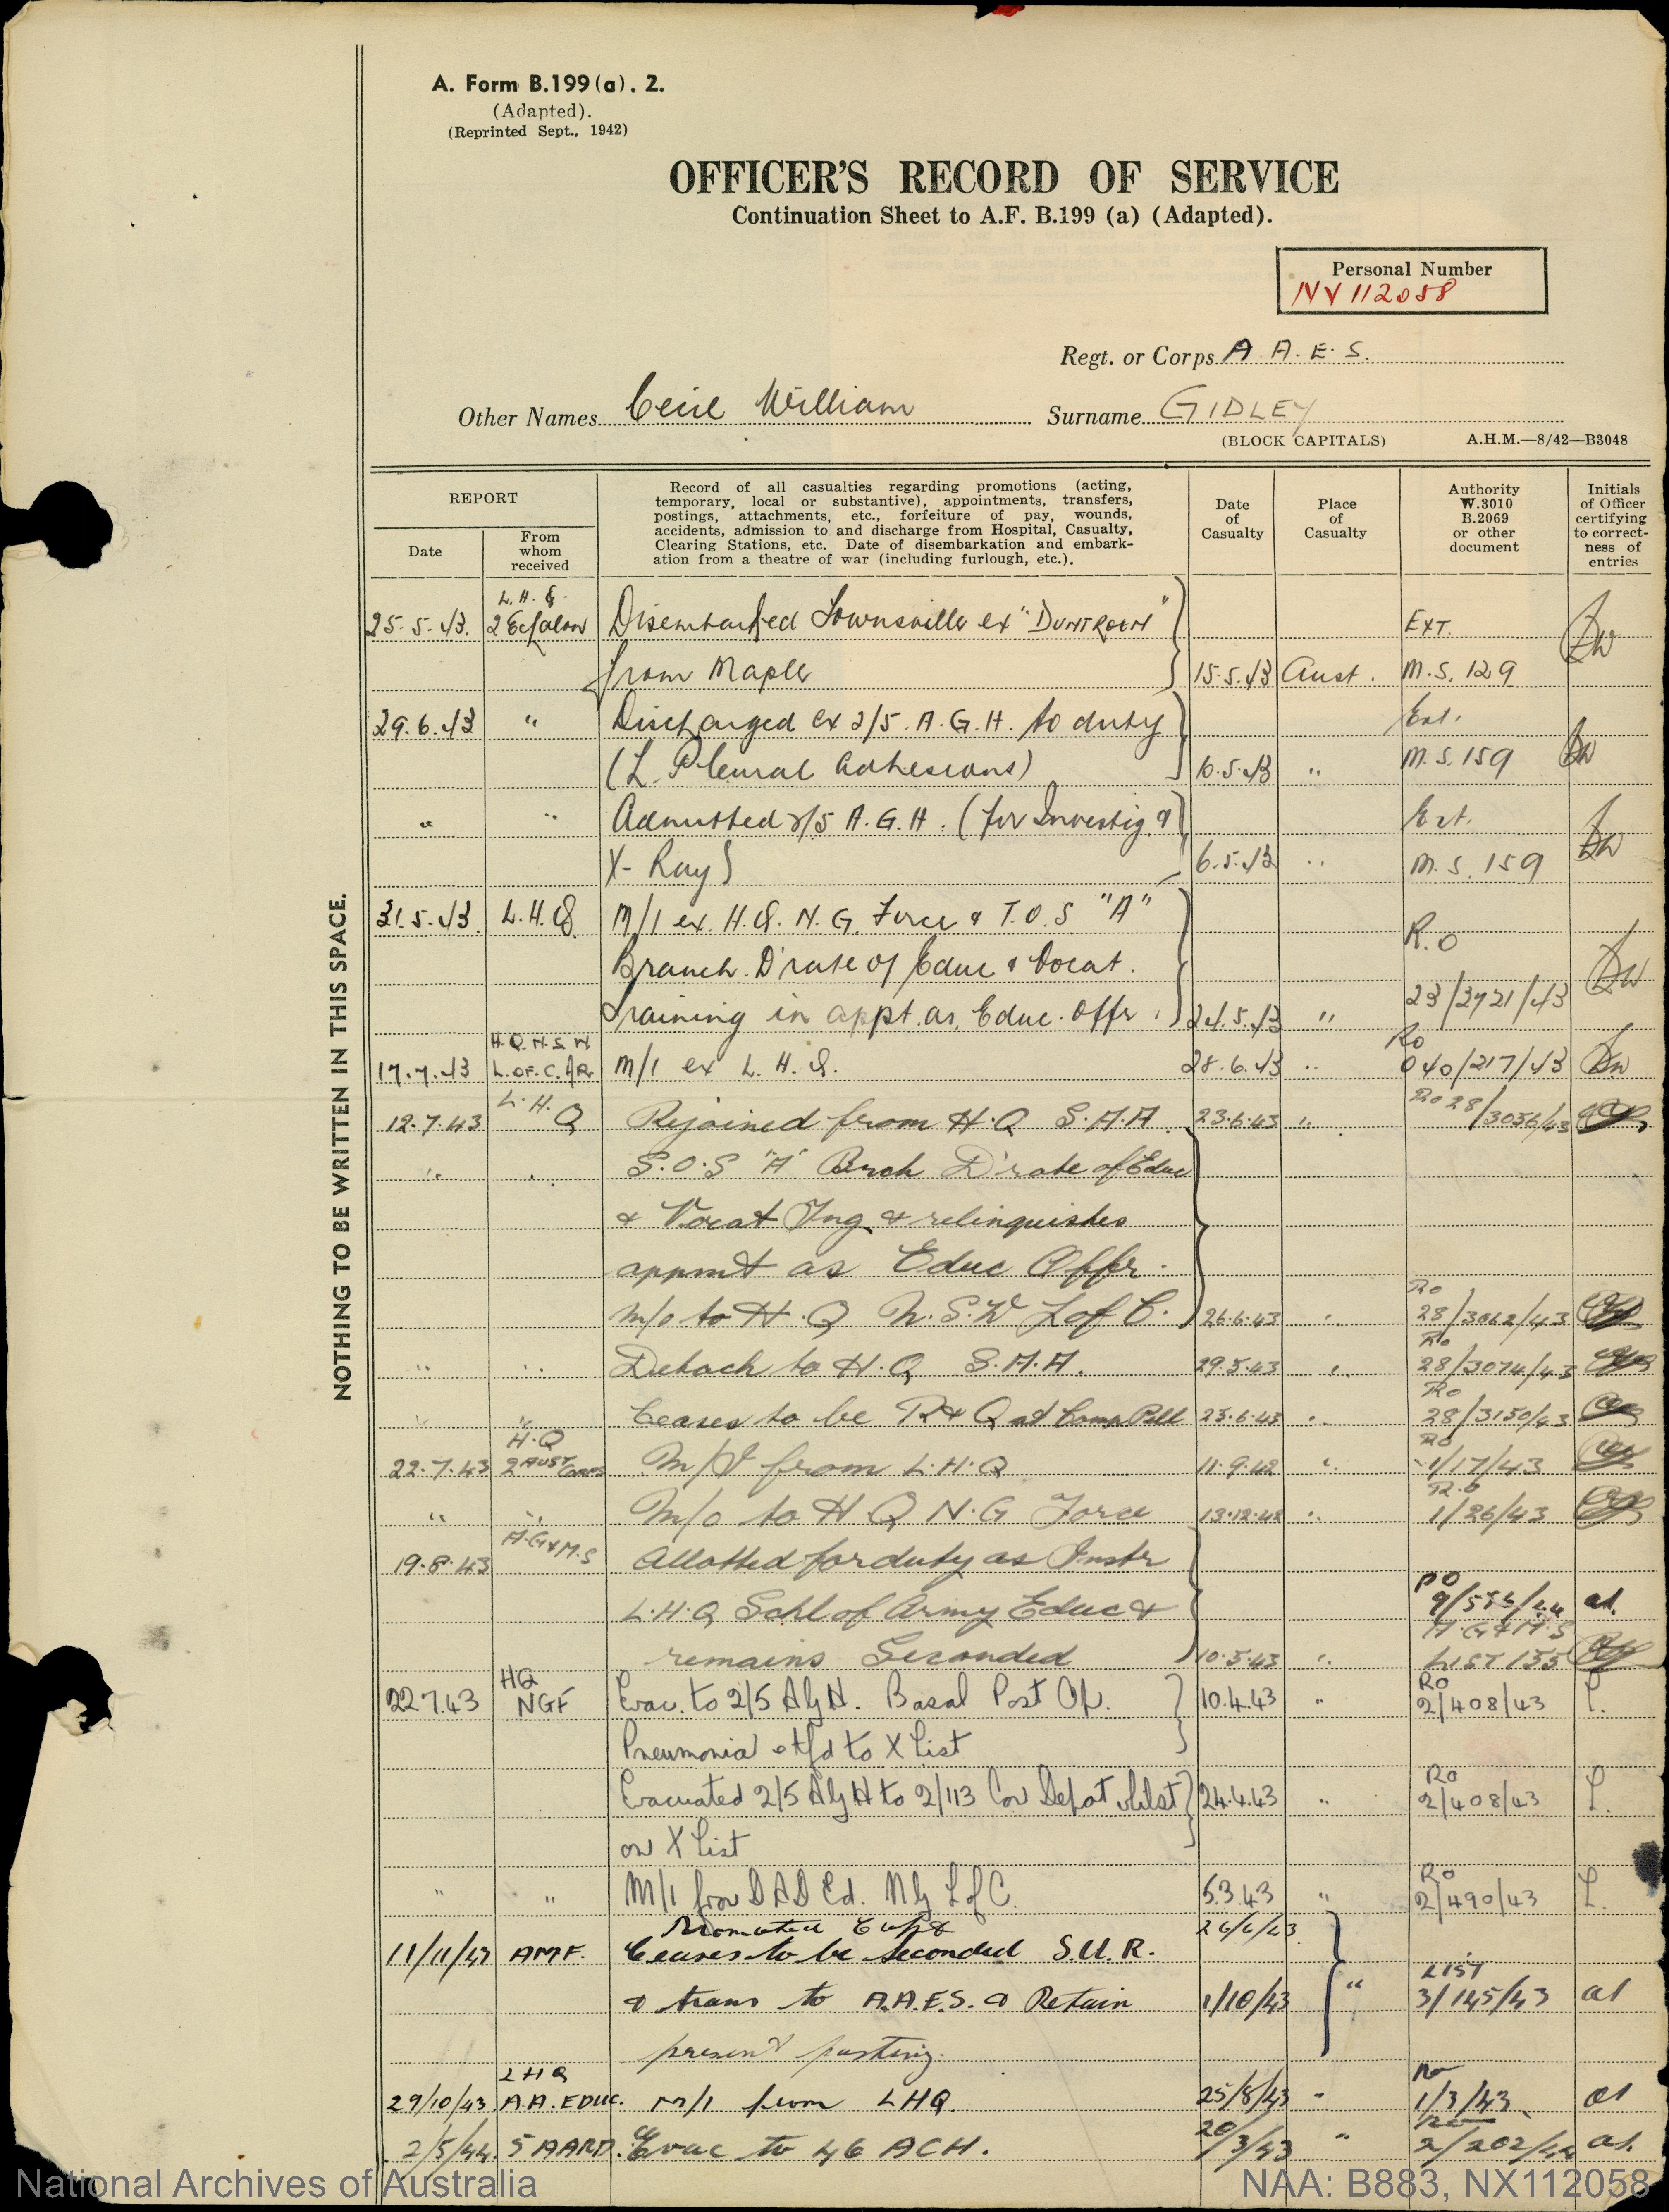 A. Form B.199 (a). 2.
(Adapted).
(Reprinted Sept., 1942)
OFFICER'S RECORD OF SERVICE
Continuation Sheet to A.F. B.199 (a) (Adapted).
Personal Number
NX 112058
Regt. or Corps A. A. E. S.
Other Names Cecil William Surname GIDLEY
(BLOCK CAPITALS) A.H.M.—8/42—B3048
NOTHING TO BE WRITTEN IN THIS SPACE.
REPORT
Date
From whom received
Record of all casualties regarding promotions (acting,
temporary, local or substantive), appointments, transfers,
postings, attachments, etc., forfeiture of pay, wounds,
accidents, admission to and discharge from Hospital, Casualty,
Clearing Stations, etc. Date of disembarkation and embark-
ation from a theatre of war (including furlough, etc.).
Date of Casualty
Place of Casualty
Authority W.3010 B.2069 or other document
Initials of Officer certifying to correct-ness of entries
L. H. Q.
25.5.43. 2 Echalon Disembarked Townsville ex "DUNTROON" EXT.
from Maple 15.5.43 Aust. M.S. 129
29.6.43 " Discharged ex 2/5. A.G.H. to duty Ext.
(L. Pleural Adhesions) 10.5.43 " M.S. 159
" " Admitted 2/5 A.G.H. (for Investig. & Ext.
X-Ray) 6.5.43 " M.S. 159
31.5.43. L.H.Q. M/I ex. H.Q. N.G. Force & T.O.S "A" R.O
Branch. D'rate of Educ & Vocat.
Training in appt. as Educ. Offr. 24.5.43 " 23/2721/43
H.Q. N.S.W Ro
17.7.43 L.OF.C. Ar M/I ex L.H.Q. 28.6.43 " 040/217/43
12.7.43 L.H.Q Rejoined from H.Q S.A.A. 23.6.43 " Ro 28/3056/43
" " S.O.S "A" Brch D'rate of Educ
& Vocat Tng. & relinquishes
appmt as Educ Offr.
M/o to H.Q N.S.W L of C. 26.6.43 " Ro 28/3062/43
" " Detach to H.Q S.A.A. 29.5.43 " Ro 28/3074/43
" " Ceases to be R & Q at Camp Pell 25.6.43 " Ro 28/3150/43
H.Q
22.7.43 2 AUST Corps M/I from L.H.Q 11.9.42 " Ro 1/17/43
" " M/o to H Q N.G Force 13.12.42 " R.o 1/26/43
19.8.43 A.G & M.S Allotted for duty as Instr
L.H.Q Schl of Army Educ & RO 9/556/44 at.
remains Seconded 10.5.43 " A.G & M.S LIST 155
HQ
22.7.43 NGF Evac. to 2/5 AGH. Basal Post Op. 10.4.43 " RO 2/408/43 L.
Pneumonia & tfd to X List
Evacuated 2/5 AGH to 2/113 Con Depot whilst 24.4.43 " RO 2/408/43 L.
on X List
" " M/I from DAD Ed. NG L of C. 5.3.43 " RO 2/490/43 L.
Promoted Capt 26/6/43
11/11/43 AMF. Ceases to be seconded S.U.R. LIST
& trans to A.A.E.S. & Retain 1/10/43 " 3/145/43 at
present posting.
LHQ Ro
29/10/43 A.A. EDUC. M/I from LHQ. 25/8/43 " 1/3/43. at
2/5/44. 5 AARD. Evac to 46 ACH. 20/3/43 " RO 2/202/44 at.
National Archives of Australia NAA: B883, NX112058